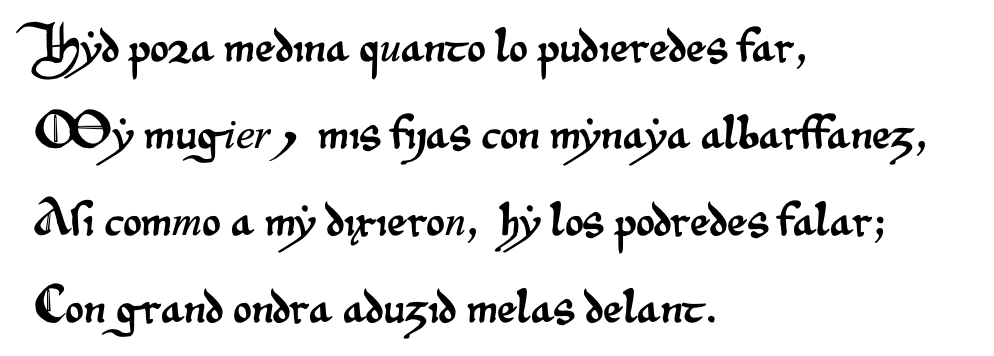 Hẏd poza medina quanto lo pudieredes far,
Mẏ mugier ⁊ mis fijas con mẏnaẏa albarffanez,
Asi commo a mẏ dixieron, hẏ los podredes falar;
Con grand ondra aduzid melas delant.